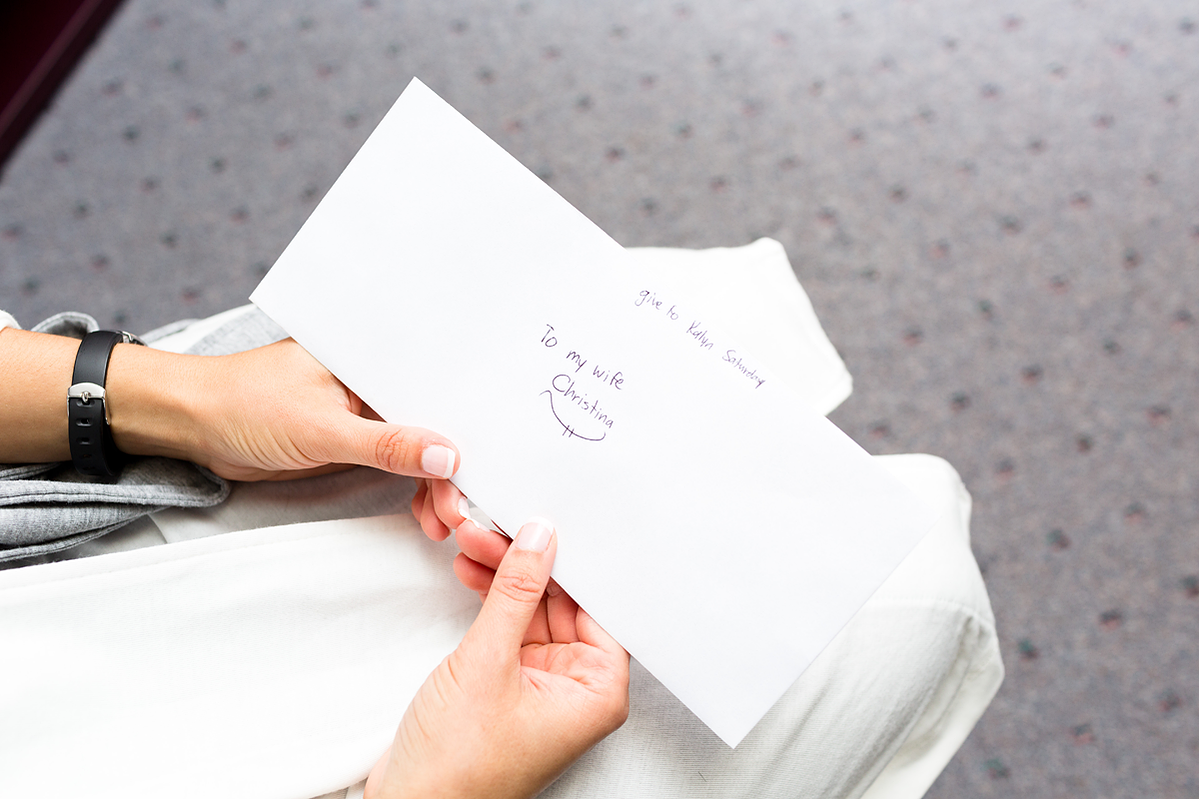 give to Kalyn Saturday
To my wife
Christina